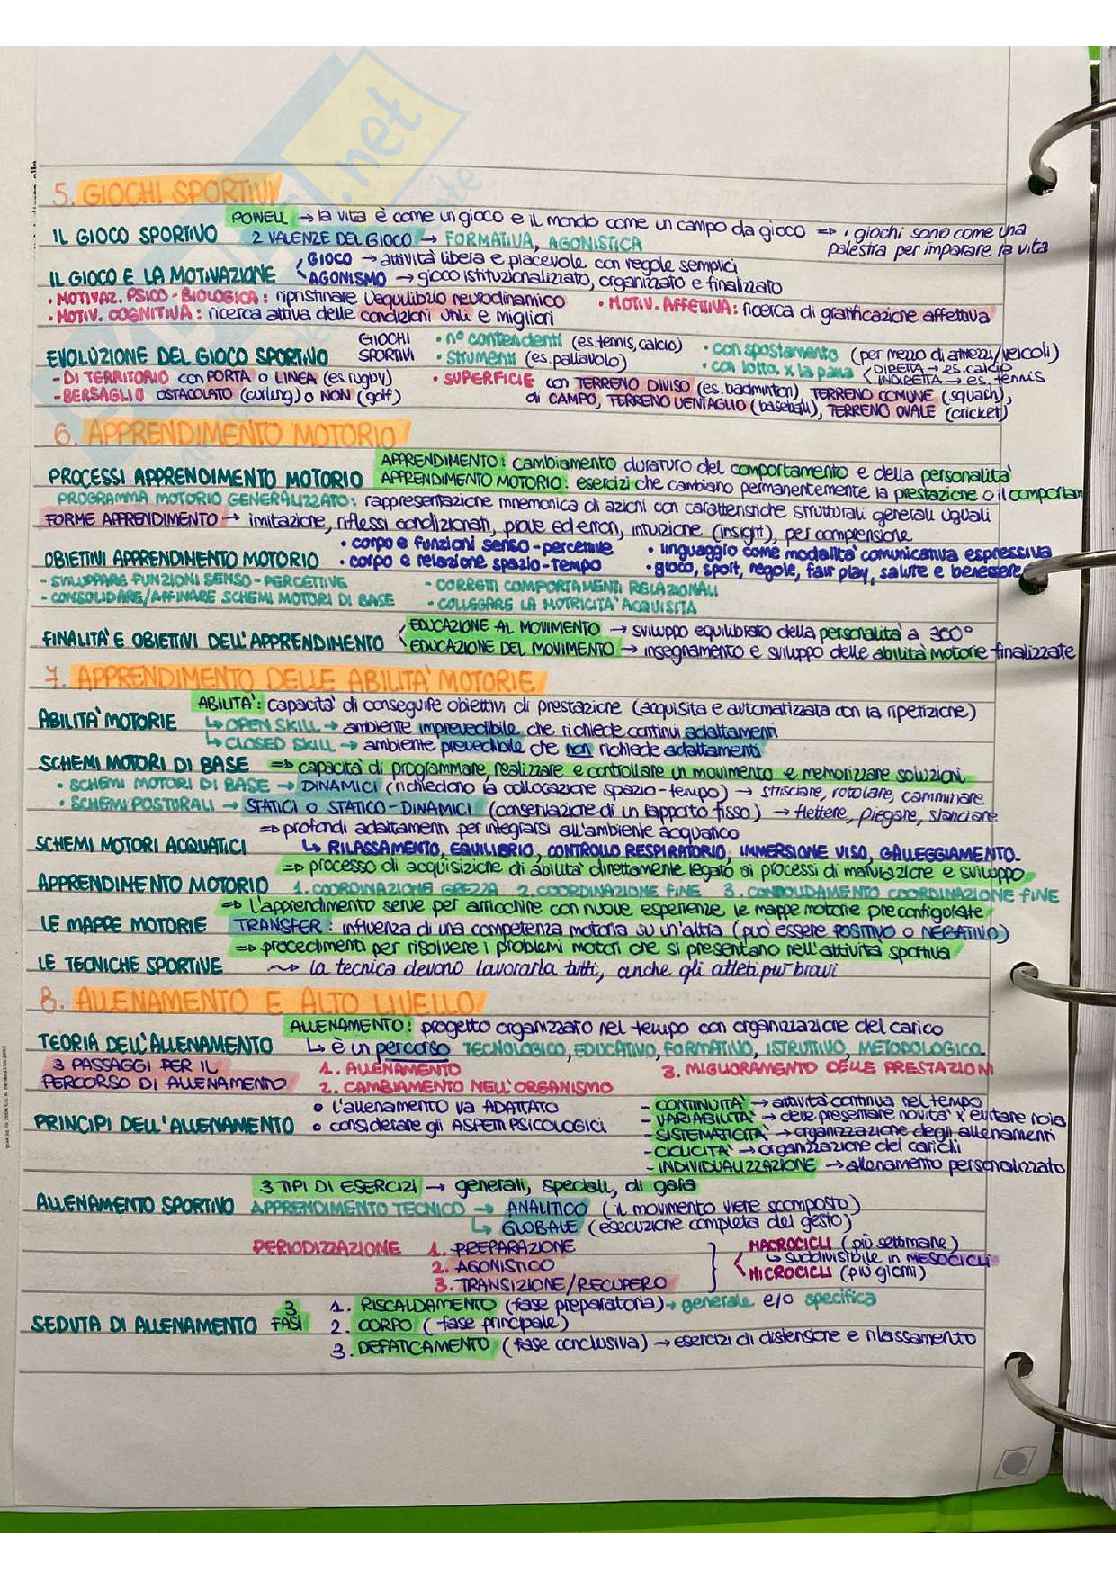 5. GIOCHI SPORTIVI
POWELL → la vita è come un gioco e il mondo come un campo da gioco => i giochi sono come una palestra per imparare la vita
IL GIOCO SPORTIVO 2 VALENZE DEL GIOCO → FORMATIVA, AGONISTICA
IL GIOCO E LA MOTIVAZIONE
GIOCO → attività libera e piacevole con regole semplici
AGONISMO → gioco istituzionalizzato, organizzato e finalizzato
• MOTIVAZ. PSICO-BIOLOGICA: ripristinare l'equilibrio neurodinamico • MOTIV. AFFETTIVA: ricerca di gratificazione affettiva
• MOTIV. COGNITIVA: ricerca attiva delle condizioni utili e migliori
EVOLUZIONE DEL GIOCO SPORTIVO
GIOCHI SPORTIVI
• n° contendenti (es. tennis, calcio) • con spostamento (per mezzo di attrezzi/veicoli)
• strumenti (es. pallavolo) • con lotta x la palla
DIRETTA → es. calcio
INDIRETTA → es. tennis
- DI TERRITORIO con PORTA o LINEA (es rugby) • SUPERFICIE con TERRENO DIVISO (es. badminton) TERRENO COMUNE (squash),
- BERSAGLIO OSTACOLATO (curling) o NON (golf) di CAMPO, TERRENO VENTAGLIO (baseball), TERRENO OVALE (cricket)
6. APPRENDIMENTO MOTORIO
PROCESSI APPRENDIMENTO MOTORIO
APPRENDIMENTO: cambiamento duraturo del comportamento e della personalità
APPRENDIMENTO MOTORIO: esercizi che cambiano permanentemente la prestazione o il comportam
PROGRAMMA MOTORIO GENERALIZZATO: rappresentazione mnemonica di azioni con caratteristiche strutturali generali uguali
FORME APPRENDIMENTO → imitazione, riflessi condizionati, prove ed errori, intuizione (insight), per comprensione
OBIETTIVI APPRENDIMENTO MOTORIO
• corpo e funzioni senso-percettive • linguaggio come modalità comunicativa espressiva
• corpo e relazione spazio-tempo • gioco, sport, regole, fair play, salute e benessere
- SVILUPPARE FUNZIONI SENSO-PERCETTIVE • CORRETTI COMPORTAMENTI RELAZIONALI
- CONSOLIDARE/AFFINARE SCHEMI MOTORI DI BASE • COLLEGARE LA MOTRICITÀ ACQUISITA
FINALITÀ E OBIETTIVI DELL'APPRENDIMENTO
EDUCAZIONE AL MOVIMENTO → sviluppo equilibrato della personalità a 360°
EDUCAZIONE DEL MOVIMENTO → insegnamento e sviluppo delle abilità motorie finalizzate
7. APPRENDIMENTO DELLE ABILITÀ MOTORIE
ABILITÀ MOTORIE
ABILITÀ: capacità di conseguire obiettivi di prestazione (acquisita e automatizzata con la ripetizione)
↳ OPEN SKILL → ambiente imprevedibile che richiede continui adattamenti
↳ CLOSED SKILL → ambiente prevedibile che non richiede adattamenti
SCHEMI MOTORI DI BASE => capacità di programmare, realizzare e controllare un movimento e memorizzare soluzioni
• SCHEMI MOTORI DI BASE → DINAMICI (richiedono la collocazione spazio-tempo) → strisciare, rotolare, camminare
• SCHEMI POSTURALI → STATICI O STATICO-DINAMICI (conservazione di un rapporto fisso) → flettere, piegare, slanciare
SCHEMI MOTORI ACQUATICI => profondi adattamenti per integrarsi all'ambiente acquatico
↳ RILASSAMENTO, EQUILIBRIO, CONTROLLO RESPIRATORIO, IMMERSIONE VISO, GALLEGGIAMENTO.
APPRENDIMENTO MOTORIO => processo di acquisizione di abilità direttamente legato ai processi di maturazione e sviluppo
1. COORDINAZIONE GREZZA 2. COORDINAZIONE FINE 3. CONSOLIDAMENTO COORDINAZIONE FINE
LE MAPPE MOTORIE => l'apprendimento serve per arricchire con nuove esperienze le mappe motorie preconfigurate
TRANSFER: influenza di una competenza motoria su un'altra (può essere POSITIVO o NEGATIVO)
LE TECNICHE SPORTIVE => procedimenti per risolvere i problemi motori che si presentano nell'attività sportiva
→ la tecnica devono lavorarla tutti, anche gli atleti più bravi
8. ALLENAMENTO E ALTO LIVELLO
TEORIA DELL'ALLENAMENTO
ALLENAMENTO: progetto organizzato nel tempo con organizzazione del carico
↳ è un percorso TECNOLOGICO, EDUCATIVO, FORMATIVO, ISTRUTTIVO, METODOLOGICO.
3 PASSAGGI PER IL PERCORSO DI ALLENAMENTO
1. ALLENAMENTO 3. MIGLIORAMENTO DELLE PRESTAZIONI
2. CAMBIAMENTO NELL'ORGANISMO
PRINCIPI DELL'ALLENAMENTO
• l'allenamento va ADATTATO
• considerare gli ASPETTI PSICOLOGICI
- CONTINUITÀ → attività continua nel tempo
- VARIABILITÀ → deve presentare novità x evitare noia
- SISTEMATICITÀ → organizzazione degli allenamenti
- CICLICITÀ → organizzazione dei carichi
- INDIVIDUALIZZAZIONE → allenamento personalizzato
ALLENAMENTO SPORTIVO
3 TIPI DI ESERCIZI → generali, speciali, di gara
APPRENDIMENTO TECNICO → ANALITICO (il movimento viene scomposto)
↳ GLOBALE (esecuzione completa del gesto)
PERIODIZZAZIONE
1. PREPARAZIONE
2. AGONISTICO
3. TRANSIZIONE/RECUPERO
MACROCICLI (più settimane)
↳ suddivisibile in MESOCICLI
MICROCICLI (più giorni)
SEDUTA DI ALLENAMENTO
3 FASI
1. RISCALDAMENTO (fase preparatoria) → generale e/o specifica
2. CORPO (fase principale)
3. DEFATICAMENTO (fase conclusiva) → esercizi di distensione e rilassamento
.net